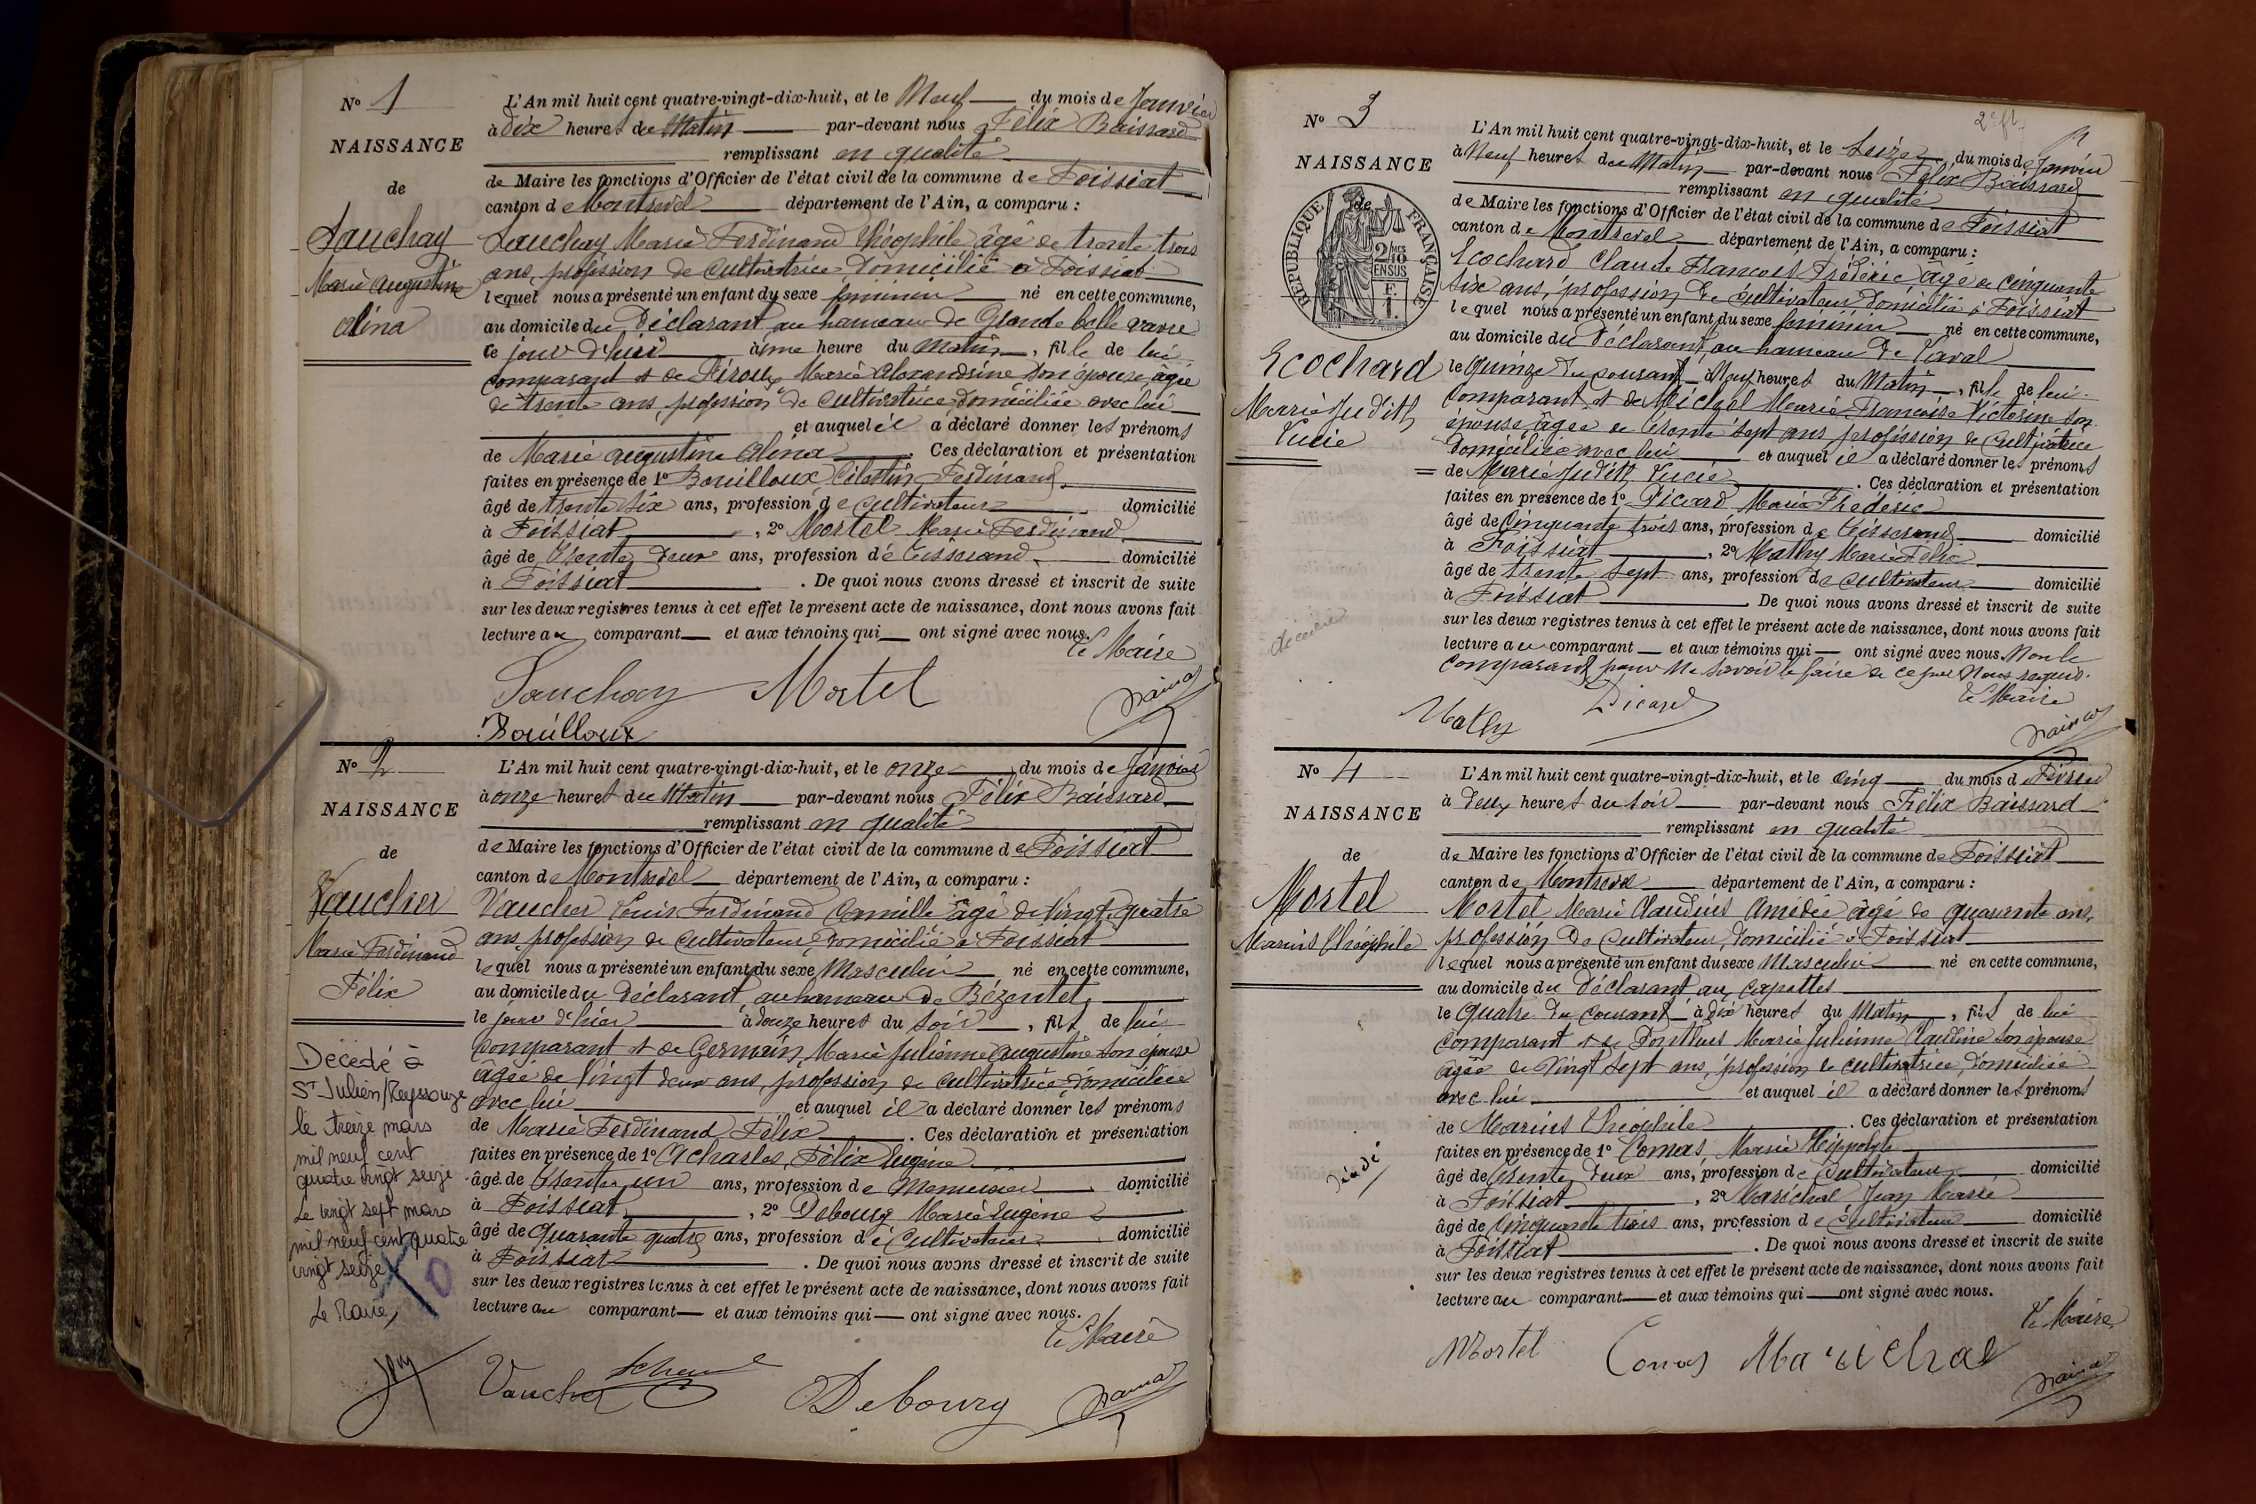 N° 1
NAISSANCE
de
Sauchay
Marie Augustine
Alina
L'An mil huit cent quatre-vingt-dix-huit, et le Neuf du mois de Janvier
à dix heures du Matin par-devant nous Félix Baissard
remplissant en qualité
de Maire les fonctions d'Officier de l'état civil de la commune de Foissiat
canton de Montrevel département de l'Ain, a comparu :
Sauchay Marie Ferdinand Théophile âgé de trente trois
ans, profession de cultivatrice domicilié à Foissiat
lequel nous a présenté un enfant du sexe féminin né en cette commune,
au domicile du Déclarant au hameau de Grande
ce jour d'hier à une heure du Matin, fille de lui
comparant et de Marie Alexandrine son épouse, âgée
de trente ans, profession de cultivatrice domiciliée avec lui
et auquel il a déclaré donner les prénoms
de Marie Augustine Alina. Ces déclaration et présentation
faites en présence de 1° Bouilloux Célestin Ferdinand
âgé de trente six ans, profession de cultivateur domicilié
à Foissiat, 2° Mortel Marie Ferdinand
âgé de trente deux ans, profession de tisserand domicilié
à Foissiat. De quoi nous avons dressé et inscrit de suite
sur les deux registres tenus à cet effet le présent acte de naissance, dont nous avons fait
lecture au comparant et aux témoins qui ont signé avec nous.
Le Maire
Sauchay Mortel
Bouilloux
N° 2
NAISSANCE
de
Vaucher
Marie Ferdinand
Félix
Décédé à
St Julien/Reyssouze
le treize mars
mil neuf cent
quatre vingt seize.
Le vingt sept mars
mil neuf cent quatre
vingt seize
Le Maire,
L'An mil huit cent quatre-vingt-dix-huit, et le onze du mois de Janvier
à onze heures du Matin par-devant nous Félix Baissard
remplissant en qualité
de Maire les fonctions d'Officier de l'état civil de la commune de Foissiat
canton de Montrevel département de l'Ain, a comparu :
Vaucher Louis Ferdinand Camille âgé de Vingt quatre
ans, profession de cultivateur, domicilié à Foissiat
lequel nous a présenté un enfant du sexe Masculin né en cette commune,
au domicile du Déclarant, au hameau de Bézentet
le jour d'hier à douze heures du soir, fils de lui
comparant et de Germain Marie Julienne Augustine son épouse
âgée de Vingt deux ans, profession de cultivatrice domiciliée
avec lui et auquel il a déclaré donner les prénoms
de Marie Ferdinand Félix. Ces déclaration et présentation
faites en présence de 1° Acharles Félix Eugène
âgé de trente un ans, profession de Menuisier domicilié
à Foissiat, 2° Debourg Marie Eugène
âgé de quarante quatre ans, profession de cultivateur domicilié
à Foissiat. De quoi nous avons dressé et inscrit de suite
sur les deux registres tenus à cet effet le présent acte de naissance, dont nous avons fait
lecture au comparant et aux témoins qui ont signé avec nous.
Le Maire
Vaucher Debourg
2e ft.
N° 3
NAISSANCE
de
RÉPUBLIQUE FRANÇAISE
2/10 EN SUS
Ecochard
Marie Judith
Lucie
L'An mil huit cent quatre-vingt-dix-huit, et le Seize du mois de Janvier
à Neuf heures du Matin par-devant nous Félix Baissard
remplissant en qualité
de Maire les fonctions d'Officier de l'état civil de la commune de Foissiat
canton de Montrevel département de l'Ain, a comparu :
Ecochard Claude François Frédéric âgé de cinquante
six ans, profession de cultivateur domicilié à Foissiat
lequel nous a présenté un enfant du sexe féminin né en cette commune,
au domicile du Déclarant, au hameau de
le quinze du courant à Neuf heures du Matin, fille de lui
comparant et de Michel Marie Françoise Victorine son
épouse âgée de trente sept ans, profession de cultivatrice
domiciliée avec lui et auquel il a déclaré donner les prénoms
de Marie Judith Lucie. Ces déclaration et présentation
faites en présence de 1° Picard Marie Frédéric
âgé de Cinquante trois ans, profession de tisserand domicilié
à Foissiat, 2° Mathy Marie Félix
âgé de trente sept ans, profession de cultivateur domicilié
à Foissiat. De quoi nous avons dressé et inscrit de suite
sur les deux registres tenus à cet effet le présent acte de naissance, dont nous avons fait
lecture au comparant et aux témoins qui ont signé avec nous. Non le
comparant pour ne savoir le faire de ce par Nous requis.
Le Maire
Mathy Picard
N° 4
NAISSANCE
de
Mortel
Marius Théophile
Décédé
L'An mil huit cent quatre-vingt-dix-huit, et le cinq du mois de Février
à deux heures du soir par-devant nous Félix Baissard
remplissant en qualité
de Maire les fonctions d'Officier de l'état civil de la commune de Foissiat
canton de Montrevel département de l'Ain, a comparu :
Mortel Marie Claudius Amédée âgé de quarante ans,
profession de Cultivateur, domicilié à Foissiat
lequel nous a présenté un enfant du sexe Masculin né en cette commune,
au domicile du Déclarant aux Capettes
le quatre du courant à dix heures du Matin, fils de lui
comparant et de Ponthus Marie Julienne Claudine son épouse
âgée de Vingt sept ans, profession de cultivatrice, domiciliée
avec lui et auquel il a déclaré donner les prénoms
de Marius Théophile. Ces déclaration et présentation
faites en présence de 1° Comas Marie Hippolyte
âgé de trente deux ans, profession de Cultivateur domicilié
à Foissiat, 2° Maréchal Jean Marie
âgé de Cinquante trois ans, profession de Cultivateur domicilié
à Foissiat. De quoi nous avons dressé et inscrit de suite
sur les deux registres tenus à cet effet le présent acte de naissance, dont nous avons fait
lecture au comparant et aux témoins qui ont signé avec nous.
Le Maire
Mortel Comas Maréchal